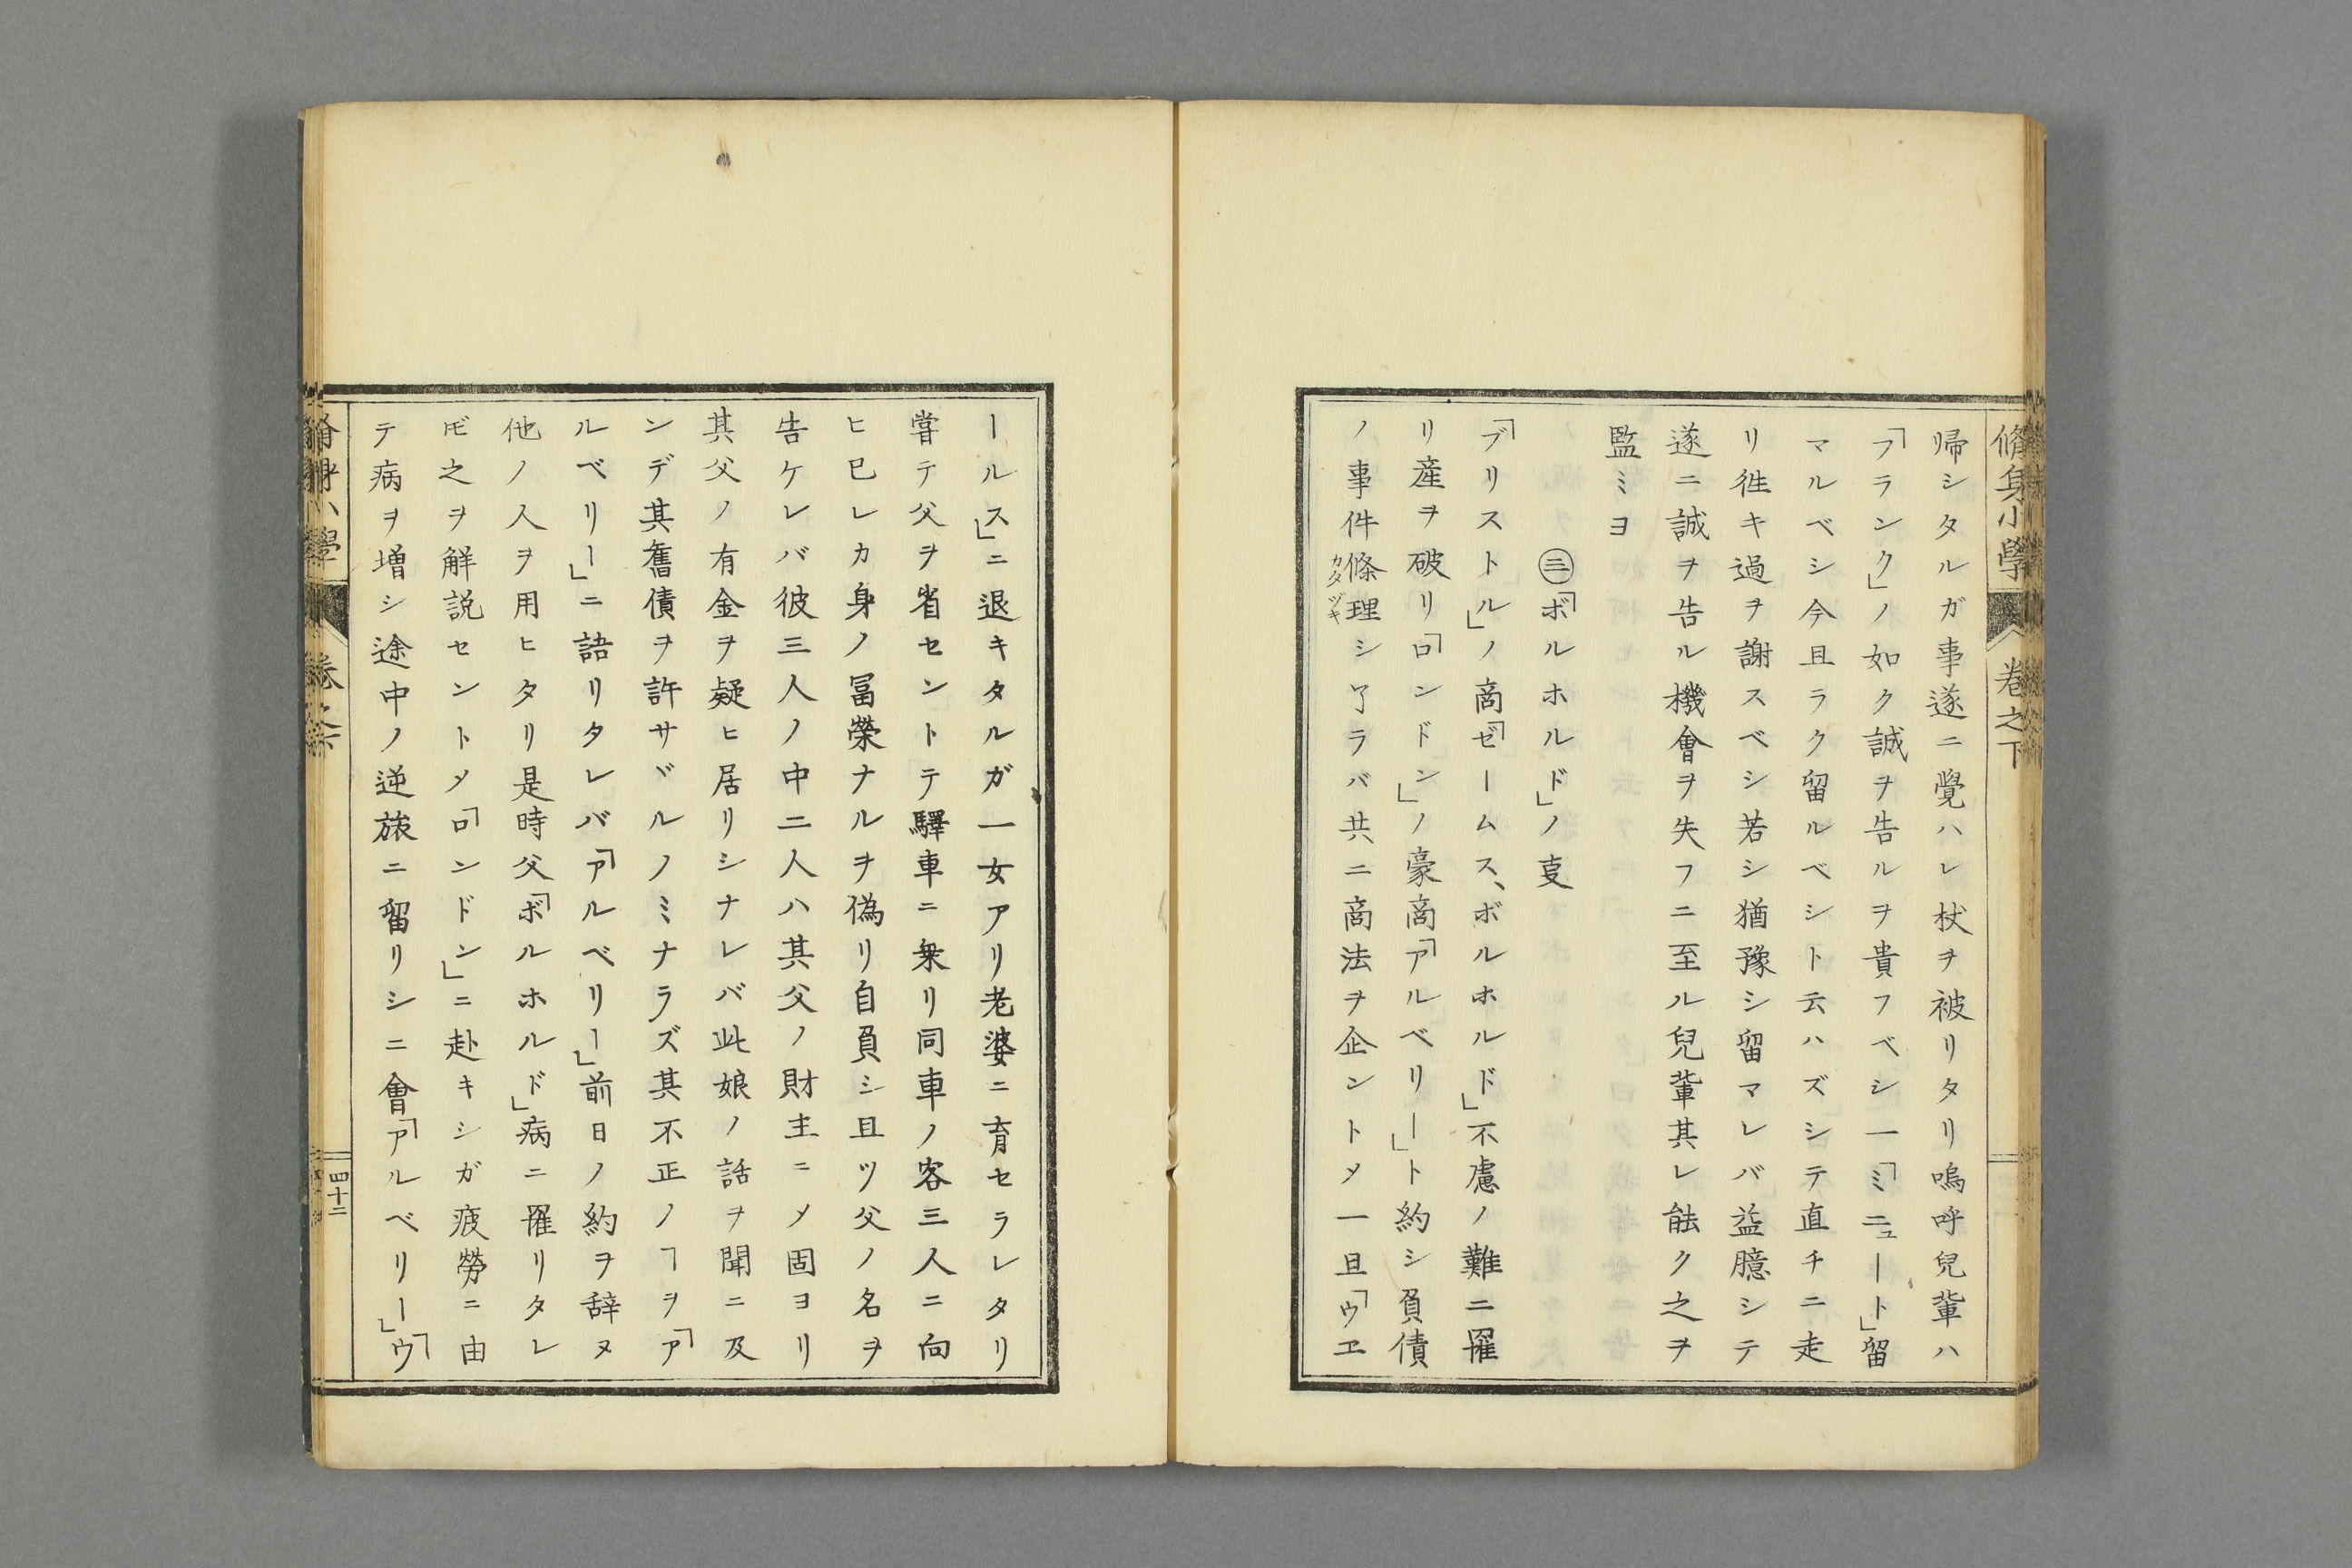 脩身小學 卷之下
帰シタルガ事遂ニ覺ハレ杖ヲ被リタリ嗚呼兒輩ハ
「フランク」ノ如ク誠ヲ告ルヲ貴フベシ一「ミニュート」留
マルベシ今且ラク留ルベシト云ハズシテ直チニ走
リ徃キ過ヲ謝スベシ若シ猶豫シ留マレバ益臆シテ
遂ニ誠ヲ告ル機會ヲ失フニ至ル兒輩其レ能ク之ヲ
監ミヨ
㊂「ボルホルド」ノ㕝
「ブリストル」ノ商「ゼームス、ボルホルド」不慮ノ難ニ罹
リ産ヲ破リ「ロンドン」ノ豪商「アルベリー」ト約シ負債
ノ事件條理シ了ラバ共ニ商法ヲ企ントメ一旦「ウエ
カタヅキ
ールス」ニ退キタルガ一女アリ老婆ニ育セラレタリ
嘗テ父ヲ省セントテ驛車ニ乗リ同車ノ客三人ニ向
ヒ已レカ身ノ冨榮ナルヲ偽リ自負シ且ツ父ノ名ヲ
告ケレバ彼三人ノ中二人ハ其父ノ財主ニメ固ヨリ
其父ノ有金ヲ疑ヒ居リシナレバ此娘ノ話ヲ聞ニ及
ンデ其舊債ヲ許サヾルノミナラズ其不正ノヿヲ「ア
ルベリー」ニ語リタレバ「アルベリー」前日ノ約ヲ辞ヌ
他ノ人ヲ用ヒタリ是時父「ボルホルド」病ニ罹リタレ
𪜈之ヲ解説セントメ「ロンドン」ニ赴キシガ疲勞ニ由
テ病ヲ増シ途中ノ逆旅ニ留リシニ會「アルベリー」「ウ
四十二